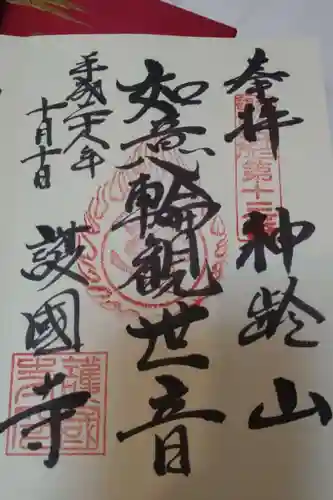 奉拝
神齢山
第十三
如意輪観世音
平成二十八年
十月十日
護國寺
護國寺